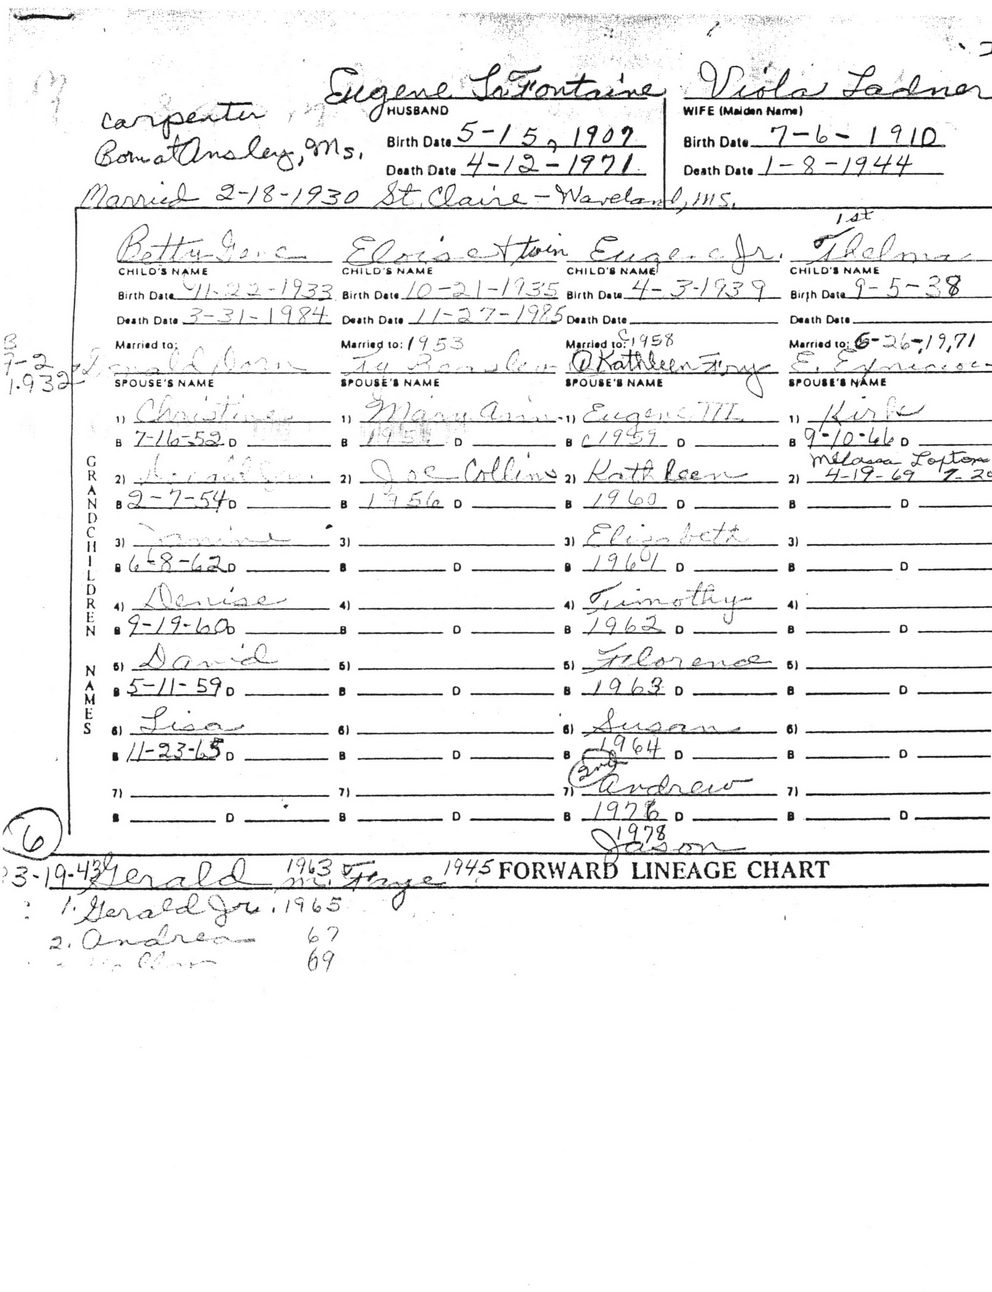 Eugene LaFontaine Viola Ladner
carpenter HUSBAND WIFE (Maiden Name)
Born at Ansley, Ms. Birth Date 5-15, 1907 Birth Date 7-6-1910
Death Date 4-12-1971 Death Date 1-8-1944
Married 2-18-1930 St. Claire - Waveland, MS.
1st
Betty Gene Eloise twin Eugene Jr. Thelma
CHILD'S NAME CHILD'S NAME CHILD'S NAME CHILD'S NAME
Birth Date 11-22-1933 Birth Date 10-21-1935 Birth Date 4-3-1939 Birth Date 9-5-38
Death Date 3-31-1984 Death Date 11-27-1985 Death Date Death Date
Married to: Married to: 1953 Married to: 1958 Married to: 6-26-1971
1932 Dorn Ty ① Kathleen Fory E.
SPOUSE'S NAME SPOUSE'S NAME SPOUSE'S NAME SPOUSE'S NAME
GRANDCHILDREN NAMES
1) Christine 1) Mary Ann 1) Eugene III 1) Kirk
B 7-16-52 D B D B c1959 D B 9-10-66 D
Melassa Lofton
2) 2) Joe Collins 2) Kathleen 2) 4-19-69
B 2-7-54 D B 1956 D B 1960 D B D
3) 3) 3) Elizabeth 3)
B 6-8-62 D B D B 1961 D B D
4) Denise 4) 4) Timothy 4)
B 9-19-60 D B D B 1962 D B D
5) David 5) 5) Florence 5)
B 5-11-59 D B D B 1963 D B D
6) Lisa 6) 6) Susan 6)
B 11-23-65 D B D B 1964 D B D
2nd
7) 7) 7) Andrew 7)
B D B D B 1976 D B D
6 1978
Jason
3-19-43 Gerald 1963 m. Faye 1945 FORWARD LINEAGE CHART
1. Gerald Jr. 1965
2. Andrea 67
69